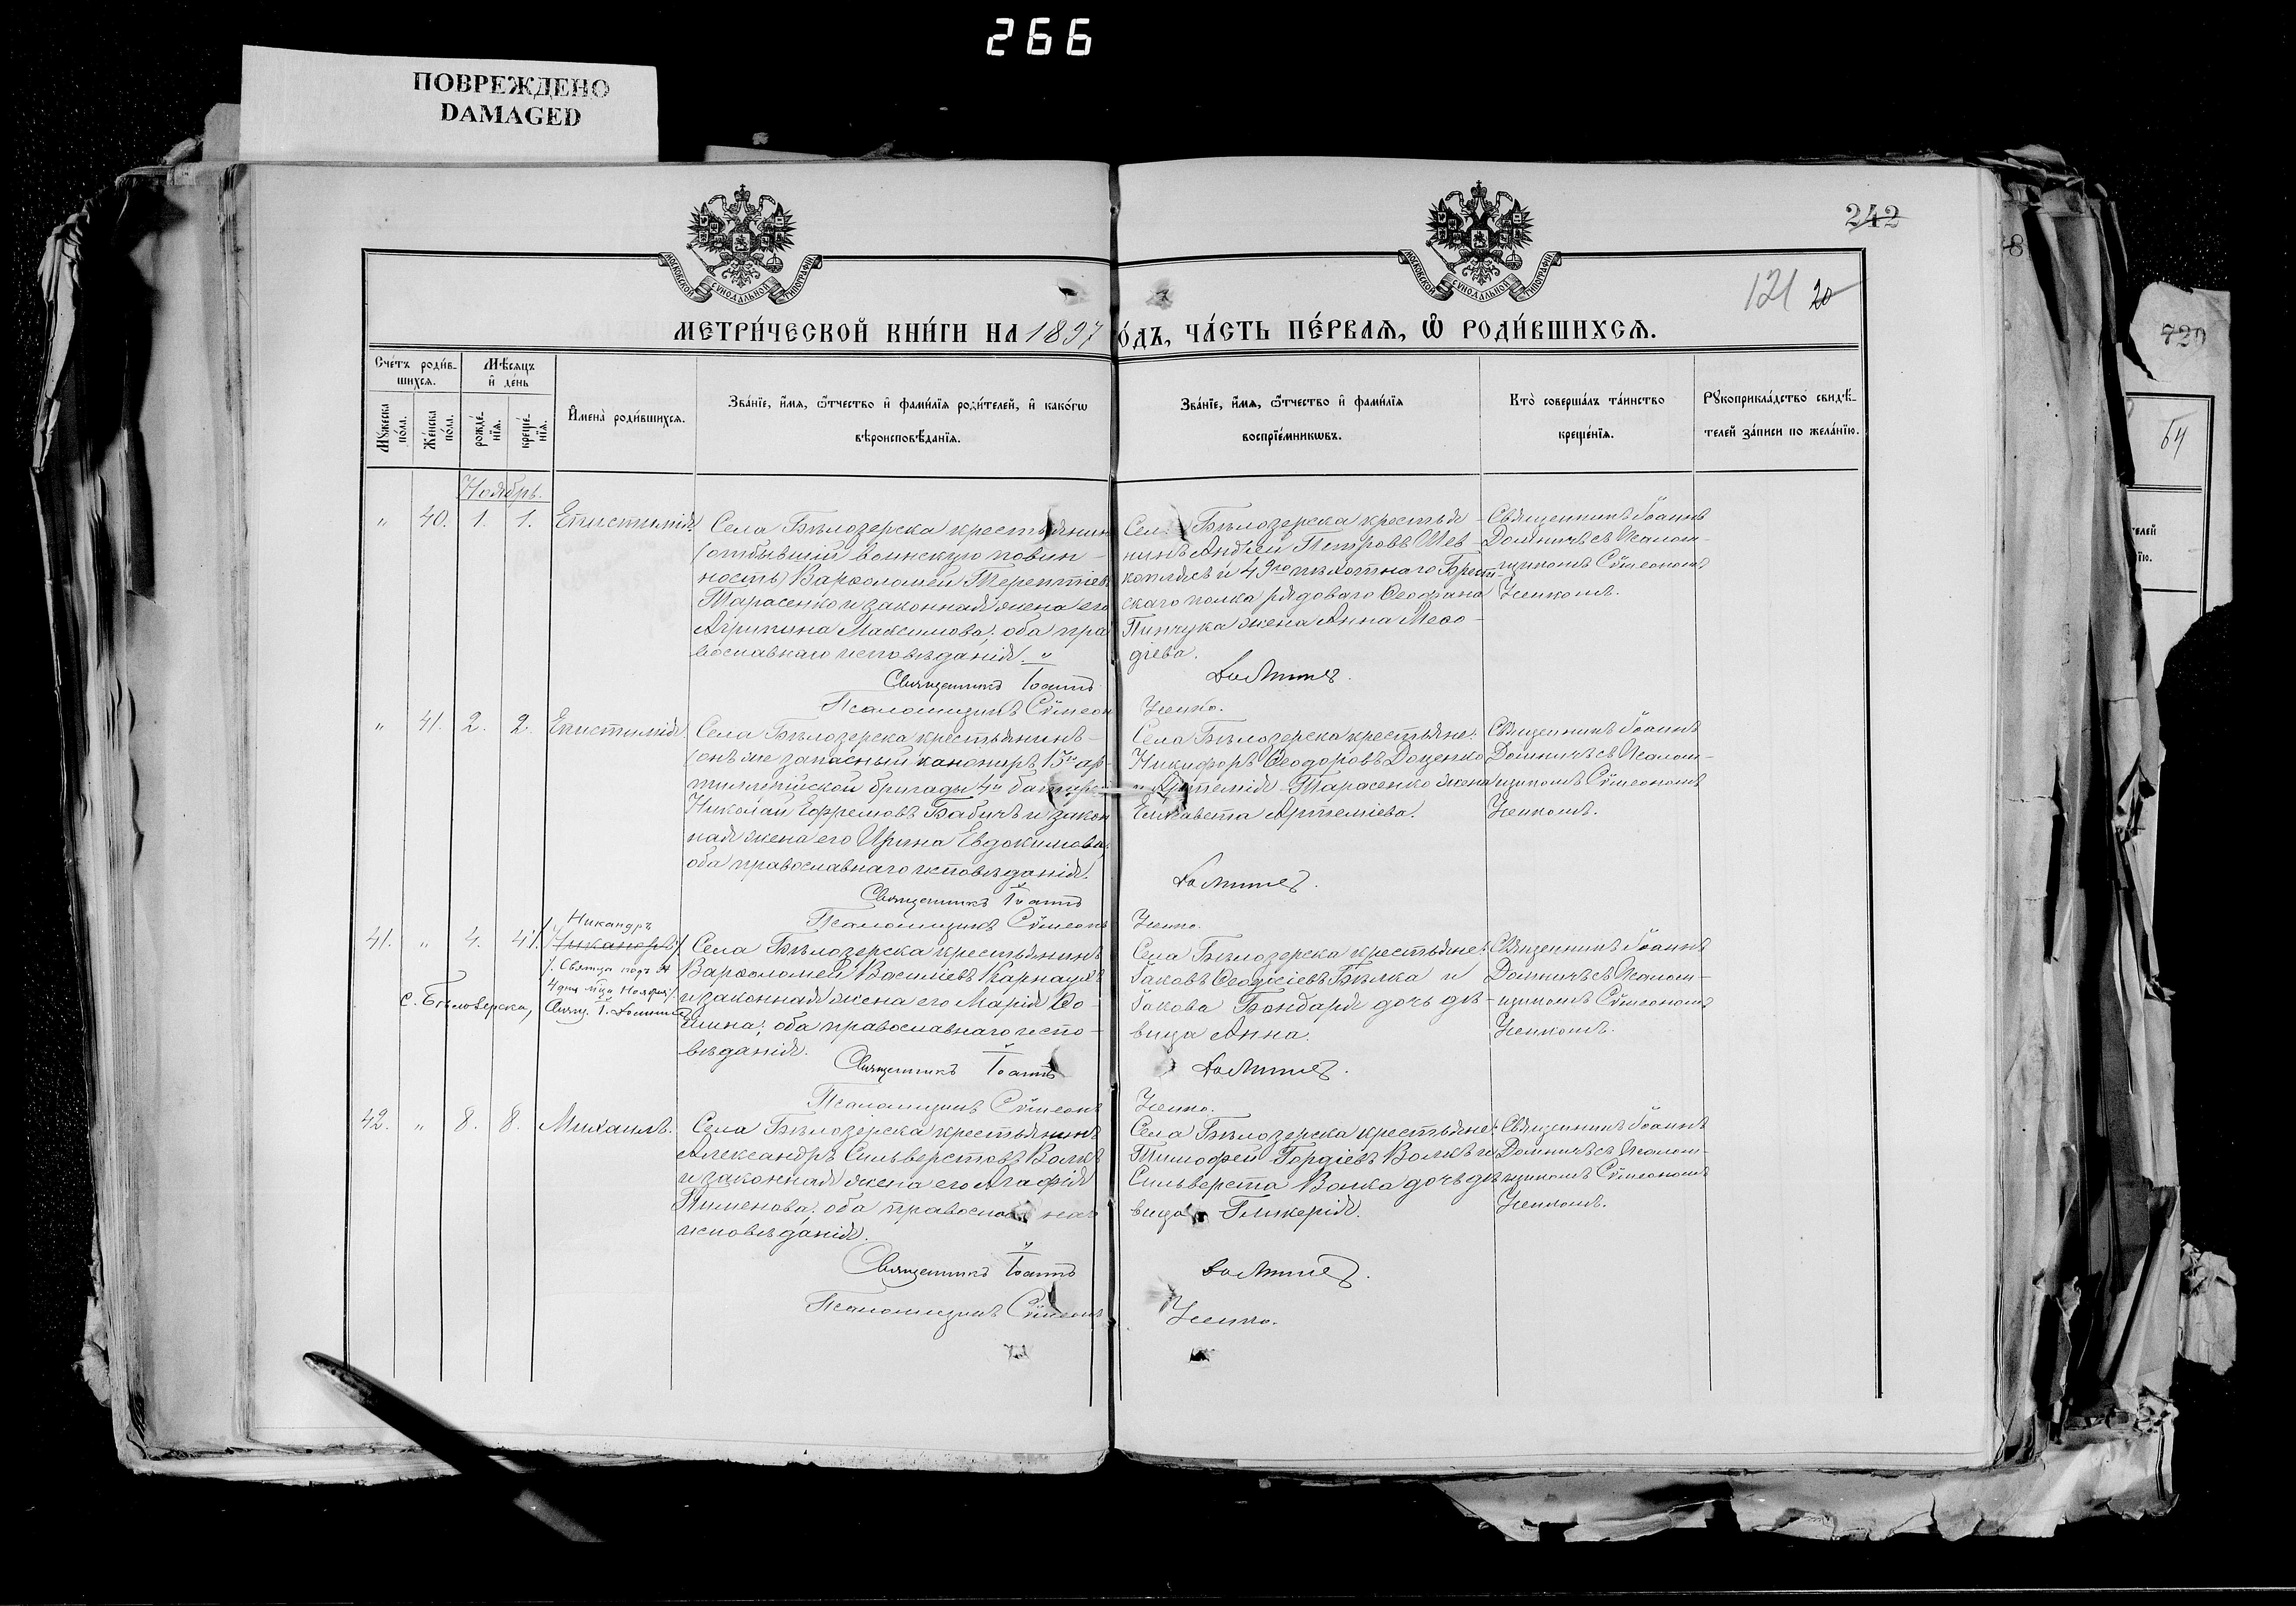 266
ПОВРЕЖДЕНО
DAMAGED
242
121 20
МОСКОВСКОЙ СѴНОДАЛЬНОЙ ТИПОГРАФІИ
МОСКОВСКОЙ СѴНОДАЛЬНОЙ ТИПОГРАФІИ
МЕТРИ́ЧЕСКОЙ КНИ́ГИ НА 1897
О́ДЪ, ЧА́СТЬ ПЕ́РВАѦ, Ѡ҆ РОДИ́ВШИХСѦ.
Сче́тъ роди́в-
шихсѧ.
Мѣ́сѧцъ
и҆ де́нь
Мꙋ́жеска
по́ла.
Же́нска
по́ла.
рожде́-
нїѧ.
креще́-
нїѧ.
И҆мена̀ роди́вшихсѧ.
Зва́нїе, и҆́мѧ, ѻ҆́тчество и҆ фами́лїѧ роди́телей, и҆ како́гѡ
вѣроисповѣ́данїѧ.
Зва́нїе, и҆́мѧ, ѻ҆́тчество и҆ фами́лїѧ
воспрїе́мникѡвъ.
Кто̀ соверша́лъ та́инство
креще́нїѧ.
Рꙋкоприкла́дство свидѣ́-
телей за́писи по жела́нїю.
Ноябрь.
" 40. 1. 1. Епистимія
Села Бѣлозерска крестьянин
(отбывшій воинскую повин-
ность) Варѳоломей Терентіев
Тарасенко и законная жена его
Агрипина Максимова; оба пра
вославнаго исповѣданія. "
Священникъ Іоаннъ
Псаломщикъ Сѵмеон
Сел Бѣлозерска крестья-
нинъ Андрей Петровъ Шев-
коплясъ и 49го пѣхотнаго Брест-
скаго полка рядоваго Ѳеофана
Пинчука жена Анна Меѳо-
діева.
Доминичъ.
Ценко.
Священникъ Іоаннъ
Доминичъ съ Псалом-
щикомъ Сѵмеономъ
Ценкомъ.
" 41. 2. 2. Епистимія.
Села Бѣлозерска крестьянинъ-
(онъ же запасный канониръ 15й ар-
тиллерійской бригады 4й батареи
Николай Ефремовъ Бабичъ и закон
ная жена его Ирина Евдокимова,
оба православнаго исповѣданія.
Священникъ Іоаннъ
Псаломщикъ Сѵмеонъ
Села Бѣлозерска крестьяне:
Никифоръ Ѳеодоровъ Доценко
и Артемія Тарасенко жена
Елисавета Артеміева.
Доминичъ.
Ценко.
Священникъ Іоаннъ
Доминичъ съ Псалом-
щикомъ Сѵмеономъ
Ценкомъ.
41. " 4. 4.
Никандръ
Никаноръ
Святцы подъ
4 дня м-ца Ноября
с. Бѣлозерска, Свящ. І. Доминичъ
Села Бѣлозерска крестьянинъ
Варѳоломей Василіевъ Карнаухъ
и законная жена его Марія Ѳо-
мина; оба православнаго испо-
вѣданія.
Священникъ Іоаннъ
Псаломщикъ Сѵмеонъ
Села Бѣлозерска крестьяне:
Іаковъ Ѳеодосіевъ Бѣлка и
Іакова Бондаря дочь дѣ-
вица Анна.
Доминичъ.
Ценко.
Священникъ Іоаннъ
Доминичъ съ Псалом-
щикомъ Сѵмеономъ
Ценкомъ.
42. " 8. 8. Михаилъ.
Села Бѣлозерска крестьянинъ
Александръ Сильверстовъ Волкъ
и законная жена его Агафія
Пименова; оба православнаг
исповѣданія.
Священникъ Іоаннъ
Псаломщикъ Сѵмеонъ
Села Бѣлозерска крестьяне:
Тимофей Гордіевъ Волкъ и
Сильверста Волка дочь дѣ-
вица Гликерія.
Доминичъ.
Ценко.
Священникъ Іоаннъ
Доминичъ съ Псалом-
щикомъ Сѵмеономъ
Ценкомъ.
720